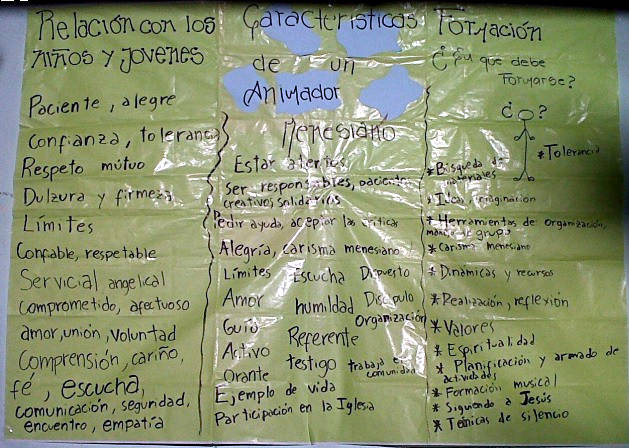 Relación con los
niños y jovenes
Paciente, alegre
Confianza, tolerancia
Respeto mútuo
Dulzura y firmeza
Límites
Confiable, respetable
Servicial angelical
comprometido, afectuoso
amor, unión, voluntad
Comprensión, cariño,
fé, escucha,
comunicación, seguridad,
encuentro, empatía
Características
de un
Animador
Menesiano
Estar atentos
Ser responsables, paciente
creativos solidarios
Pedir ayuda, aceptar las críticas
Alegría, carisma menesiano
Límites Escucha Dispuesto
Amor humildad Discípulo
Guía Referente Organización
Activo testigo trabaja en comunidad
Orante
Ejemplo de vida
Participación en la Iglesia
Formación
¿En que debe
Formarse?
¿ ?
* Tolerancia
* Búsqueda de
materiales
* Ideas, imaginación
* Herramientas de organización,
manejo de grupo
* Carisma menesiano
* Dinámicas y recursos
* Realización, reflexión
* Valores
* Espiritualidad
* Planificación y armado de
actividades
* Formación musical
* Siguiendo a Jesús
* Técnicas de silencio